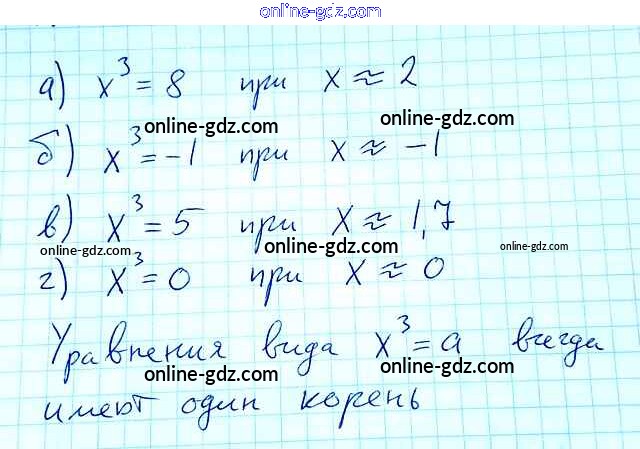 online-gdz.com
а) x³ = 8 при x ≈ 2
online-gdz.com online-gdz.com
б) x³ = -1 при x ≈ -1
в) x³ = 5 при x ≈ 1,7
online-gdz.com online-gdz.com online-gdz.com
г) x³ = 0 при x ≈ 0
Уравнения вида x³ = a всегда
online-gdz.com online-gdz.com
имеют один корень